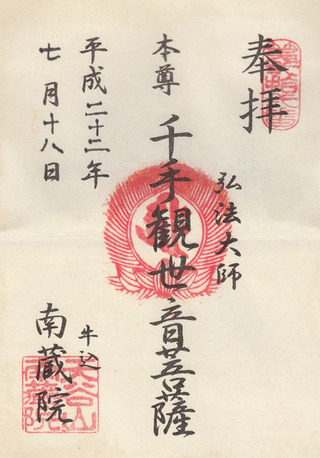 奉拝
弘法大師
本尊 千手観世音菩薩
平成二十二年
七月十八日
牛込
南蔵院